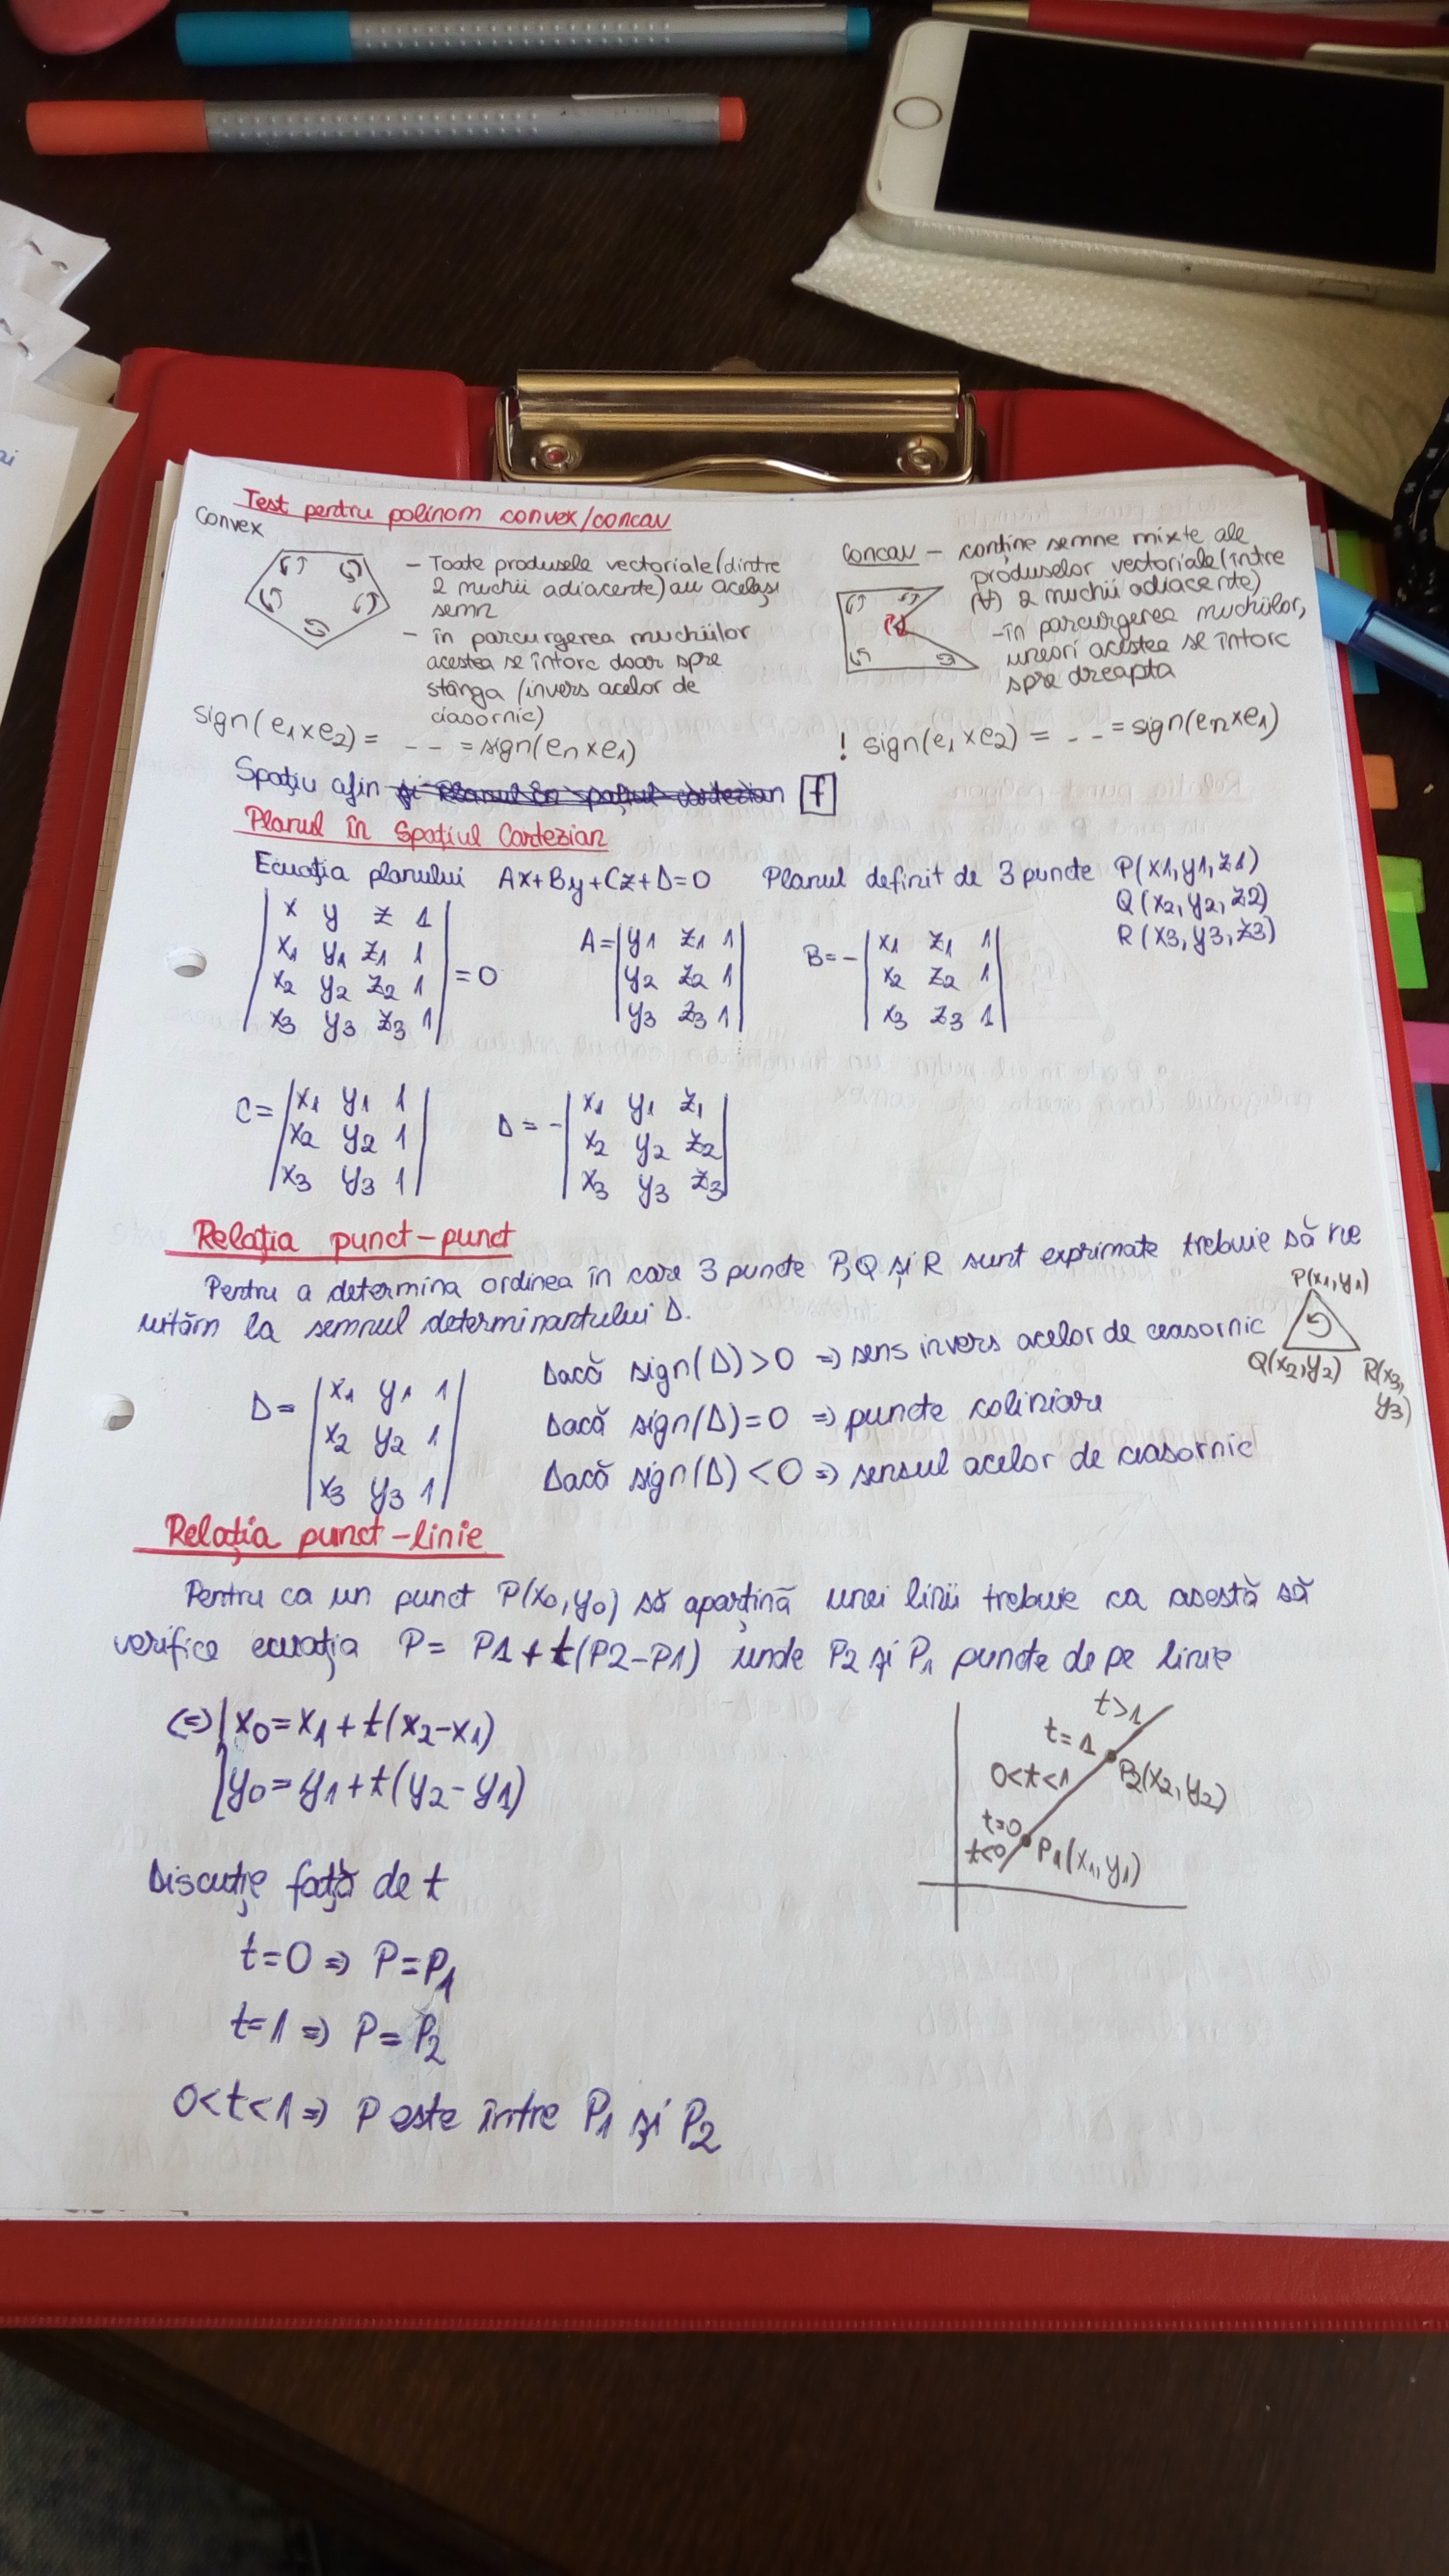 Test pentru polinom convex/concav
Convex
- Toate produsele vectoriale (dintre
2 muchii adiacente) au același
semn
- în parcurgerea muchiilor
acestea se întorc doar spre
stânga (invers acelor de
ciasornic)
sign(e1xe2) = - - = sign(en x e1)
Concav - conține semne mixte ale
produselor vectoriale (între
(∀) 2 muchii adiacente)
- în parcurgerea muchiilor,
uneori acestea se întorc
spre dreapta
! sign(e1 x e2) = - - = sign(en x e1)
Spațiu afin și Planul în spațiul cartezian f
Planul în Spațiul Cartezian
Ecuația planului Ax+By+Cz+D=0 Planul definit de 3 puncte P(x1,y1,z1)
Q(x2,y2,z2)
R(x3,y3,z3)
| x y z 1 |
| x1 y1 z1 1 |
| x2 y2 z2 1 | = 0
| x3 y3 z3 1 |
A = | y1 z1 1 |
| y2 z2 1 |
| y3 z3 1 |
B = - | x1 z1 1 |
| x2 z2 1 |
| x3 z3 1 |
C = | x1 y1 1 |
| x2 y2 1 |
| x3 y3 1 |
D = - | x1 y1 z1 |
| x2 y2 z2 |
| x3 y3 z3 |
Relația punct-punct
Pentru a determina ordinea în care 3 puncte P,Q și R sunt exprimate trebuie să ne
uităm la semnul determinantului D.
P(x1,y1)
Q(x2,y2) R(x3,
y3)
D = | x1 y1 1 |
| x2 y2 1 |
| x3 y3 1 |
Dacă sign(D)>0 => sens invers acelor de ceasornic
Dacă sign(D)=0 => puncte coliniare
Dacă sign(D)<0 => sensul acelor de ceasornic
Relația punct-linie
Pentru ca un punct P(x0,y0) să aparțină unei linii trebuie ca acestă să
verifice ecuația P= P1+t(P2-P1) unde P2 și P1 puncte de pe linie
(=) x0=x1+t(x2-x1)
y0=y1+t(y2-y1)
t>1
t=1
P2(x2,y2)
0<t<1
t=0
t<0
P1(x1,y1)
Discuție față de t
t=0 => P=P1
t=1 => P=P2
0<t<1 => P este între P1 și P2